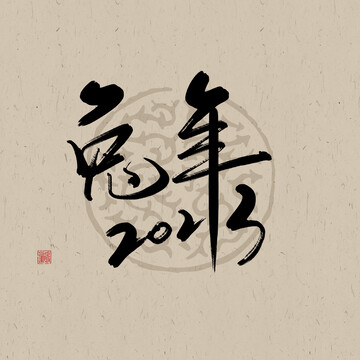 兔年
2023